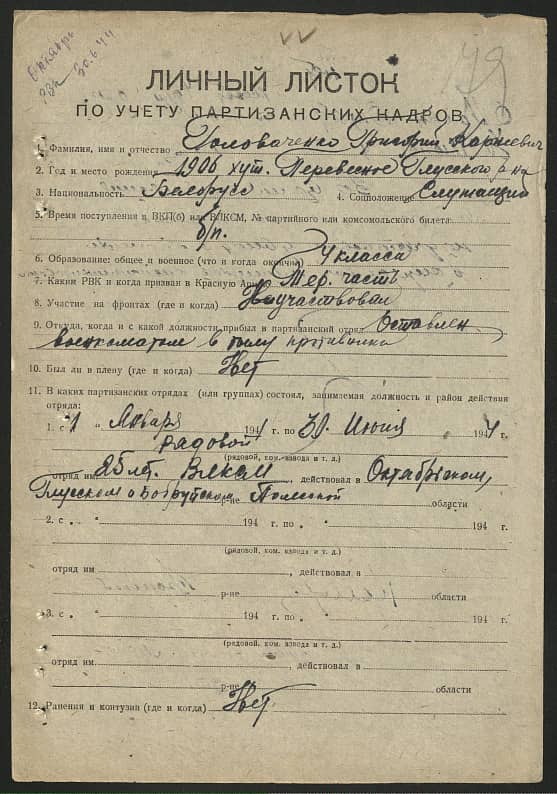 Октябрь
20.6.44
149
ЛИЧНЫЙ ЛИСТОК
ПО УЧЕТУ ПАРТИЗАНСКИХ КАДРОВ
1. Фамилия, имя и отчество Головаченко Григорий Карнеевич
2. Год и место рождения 1906 хут. Перевесное Глусского р-на
3. Национальность Белорусс 4. Соцположение Служащий
5. Время поступления в ВКП(б) или ВЛКСМ, № партийного или комсомольского билета
б/п.
6. Образование: общее и военное (что и когда окончил) 4 класса
7. Каким РВК и когда призван в Красную Армию Тер. часть
8. Участие на фронтах (где и когда) Не участвовал
9. Откуда, когда и с какой должности прибыл в партизанский отряд Оставлен
военкоматом в тылу противника
10. Был ли в плену (где и когда) Нет
11. В каких партизанских отрядах (или группах) состоял, занимаемая должность и район действия
отряда:
1. с "1" Января 194 г. по "30" Июня 1944 г.
рядовой
(рядовой, ком. взвода и т. д.)
отряд им. 25 лет. ВЛКСМ, действовал в Октябрьском,
Глусском Бобруйском р-не Полесской области
2. с " " 194 г. по " " 194 г.
(рядовой, ком. взвода и т. д.)
отряд им. , действовал в
р-не области
3. с " " 194 г. по " " 194 г.
(рядовой, ком. взвода и т. д.)
отряд им. , действовал в
р-не области
12. Ранения и контузии (где и когда) Нет